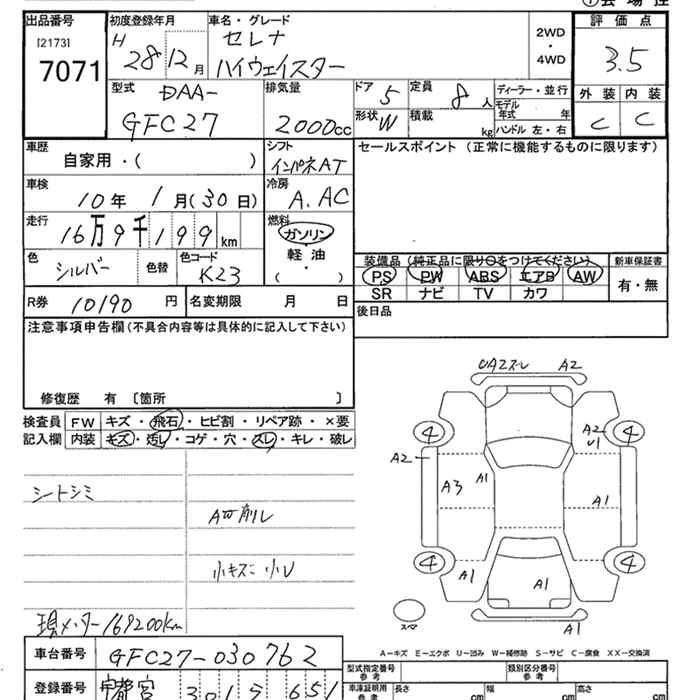 出品番号 初度登録年月 車名・グレード 評価点
[2173] H 28 12月 セレナ 2WD
7071 ハイウェイスター ・ 3.5
4WD
型式 DAA- 排気量 ドア 5 定員 8人 ディーラー・並行 外装 内装
GFC27 2000cc 形状 W 積載 kg モデル年式 年 C C
ハンドル 左・右
車歴 シフト セールスポイント (正常に機能するものに限ります)
自家用・( ) インパネAT
車検 冷房
10年 1月(30日) A.AC
走行 燃料
16万9千199km ガソリン
軽油
・
( )
色 シルバー 色替 色コード K23
装備品(純正品に限り○をつけてください) 新車保証書
PS PW ABS エアB AW 有・無
SR ナビ TV カワ
R券 10190円 名変期限 月 日 後日品
注意事項申告欄(不具合内容等は具体的に記入して下さい)
修復歴 有 〔箇所 〕
検査員 FW キズ・飛石・ヒビ割・リペア跡・×要
記入欄 内装 キズ・汚レ・コゲ・穴・スレ・キレ・破レ
シートシミ
A凹削レ
小キズ 小U
現メーター169200km
UA2スレ A2
4 A2 U1 4
A2 A3 A1 A1
4 A1 A1 4
A1
スペア
A−キズ E−エクボ U−凹み W−補修跡 S−サビ C−腐食 XX−交換済
車台番号 GFC27-030762
登録番号 宇都宮 301 651
型式指定番号 参考 類別区分番号 参考
車庫証明用 参考 長さ cm 幅 cm 高さ cm